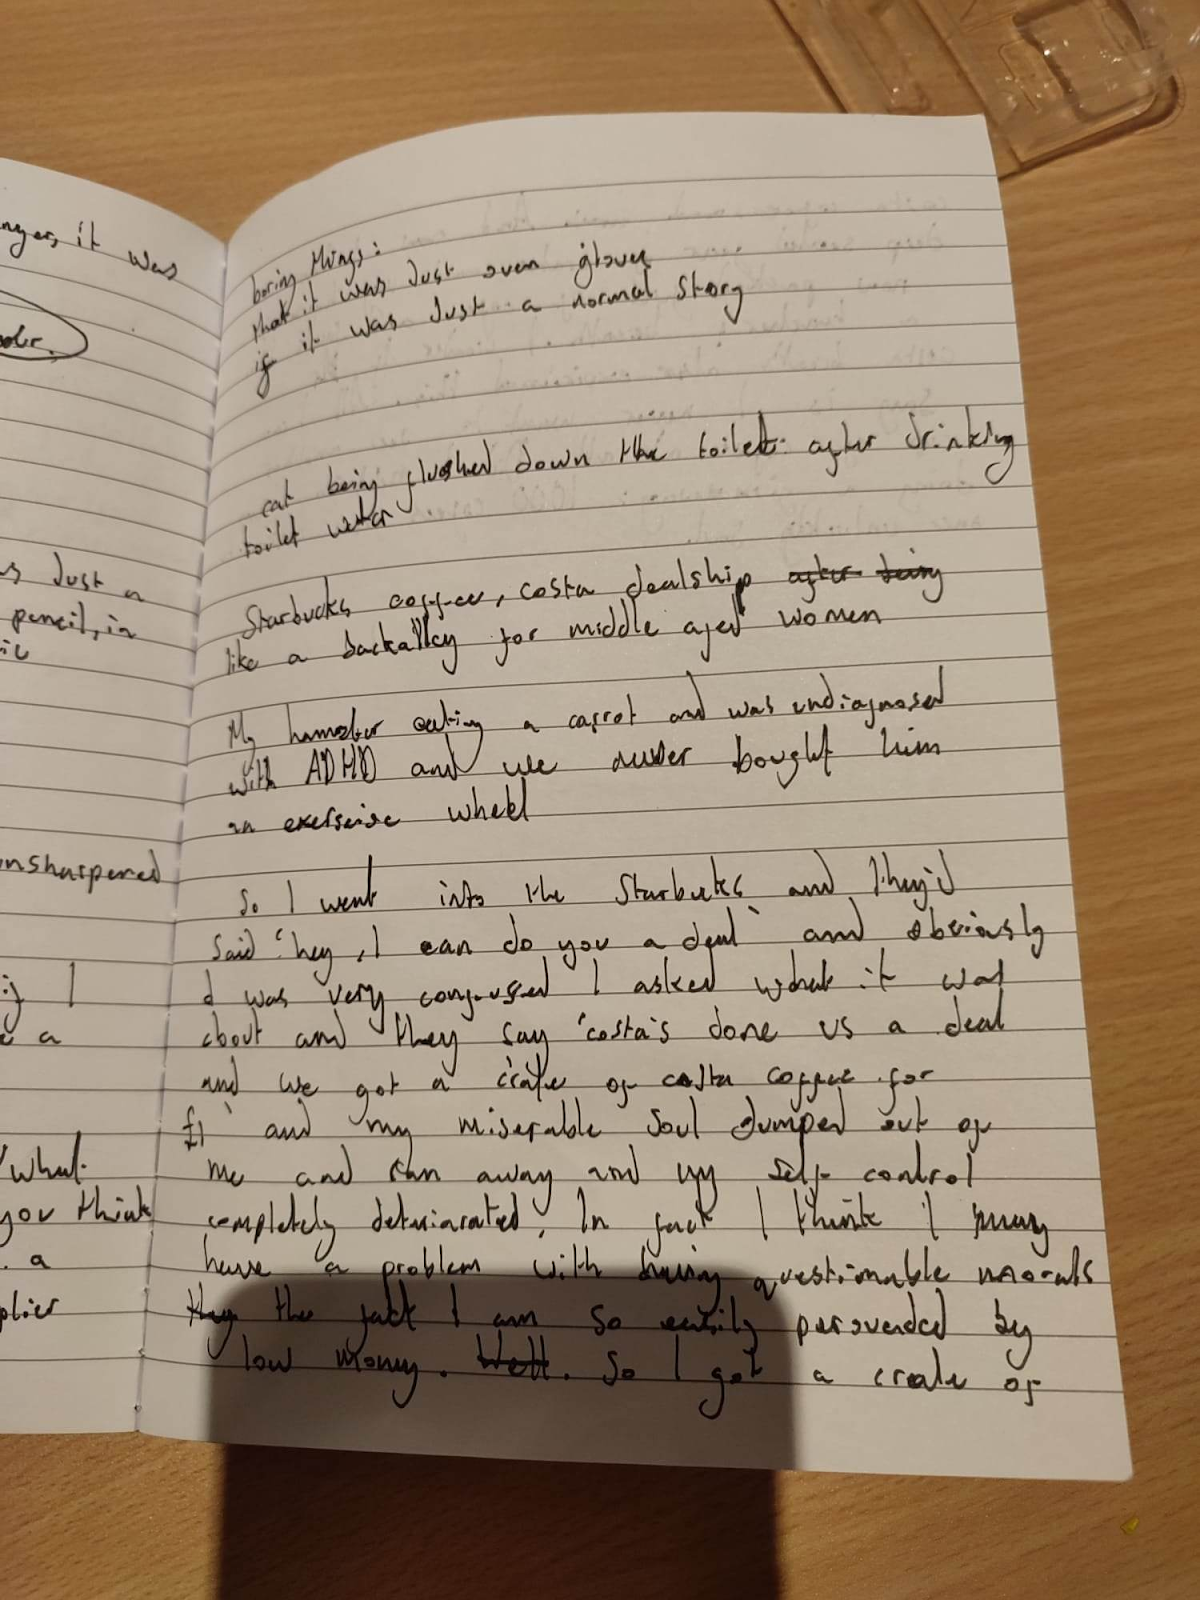 nger, it was
s Just a
pencil, in
ic
unsharpened
I
e a
what
you think
. a
plier
boring things:
that it was Just oven gloves
if it was Just a normal story
cat being flushed down the toilet after drinking
toilet water
Starbucks coffee, costa dealship after being
like a backalley for middle aged women
My hamster eating a carrot and was undiagnosed
with ADHD and we never bought him
an exerseise wheel
So I went into the Starbucks and they'd
Said 'hey, I can do you a deal' and obviously
I was very confused I asked what it was
about and they say 'costa's done us a deal
and we got a crate of costa coffee for
£1' and my miserable soul dumped out of
me and ran away and my self control
completely deteriarated. In fact I think I may
have a problem with having questionable morals
they the fact I am so easily persuaded by
low money. Well. So I got a crate of